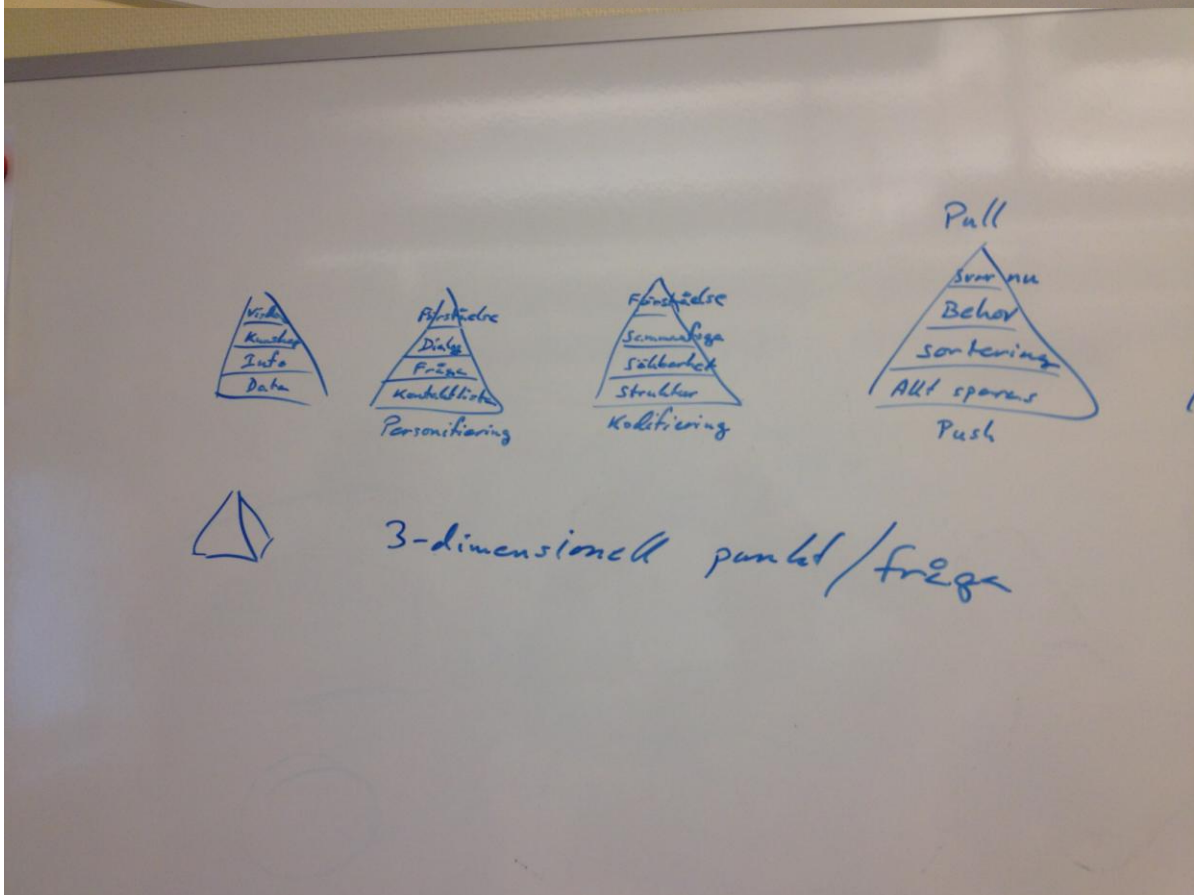 Kunskap
Info
Data
Förståelse
Dialog
Fråga
Kontaktlistan
Personifiering
Förståelse
Sammanfoga
Sökbarhet
Struktur
Kodifiering
Pull
Svar nu
Behov
sortering
Allt sparas
Push
3-dimensionell punkt/fråga